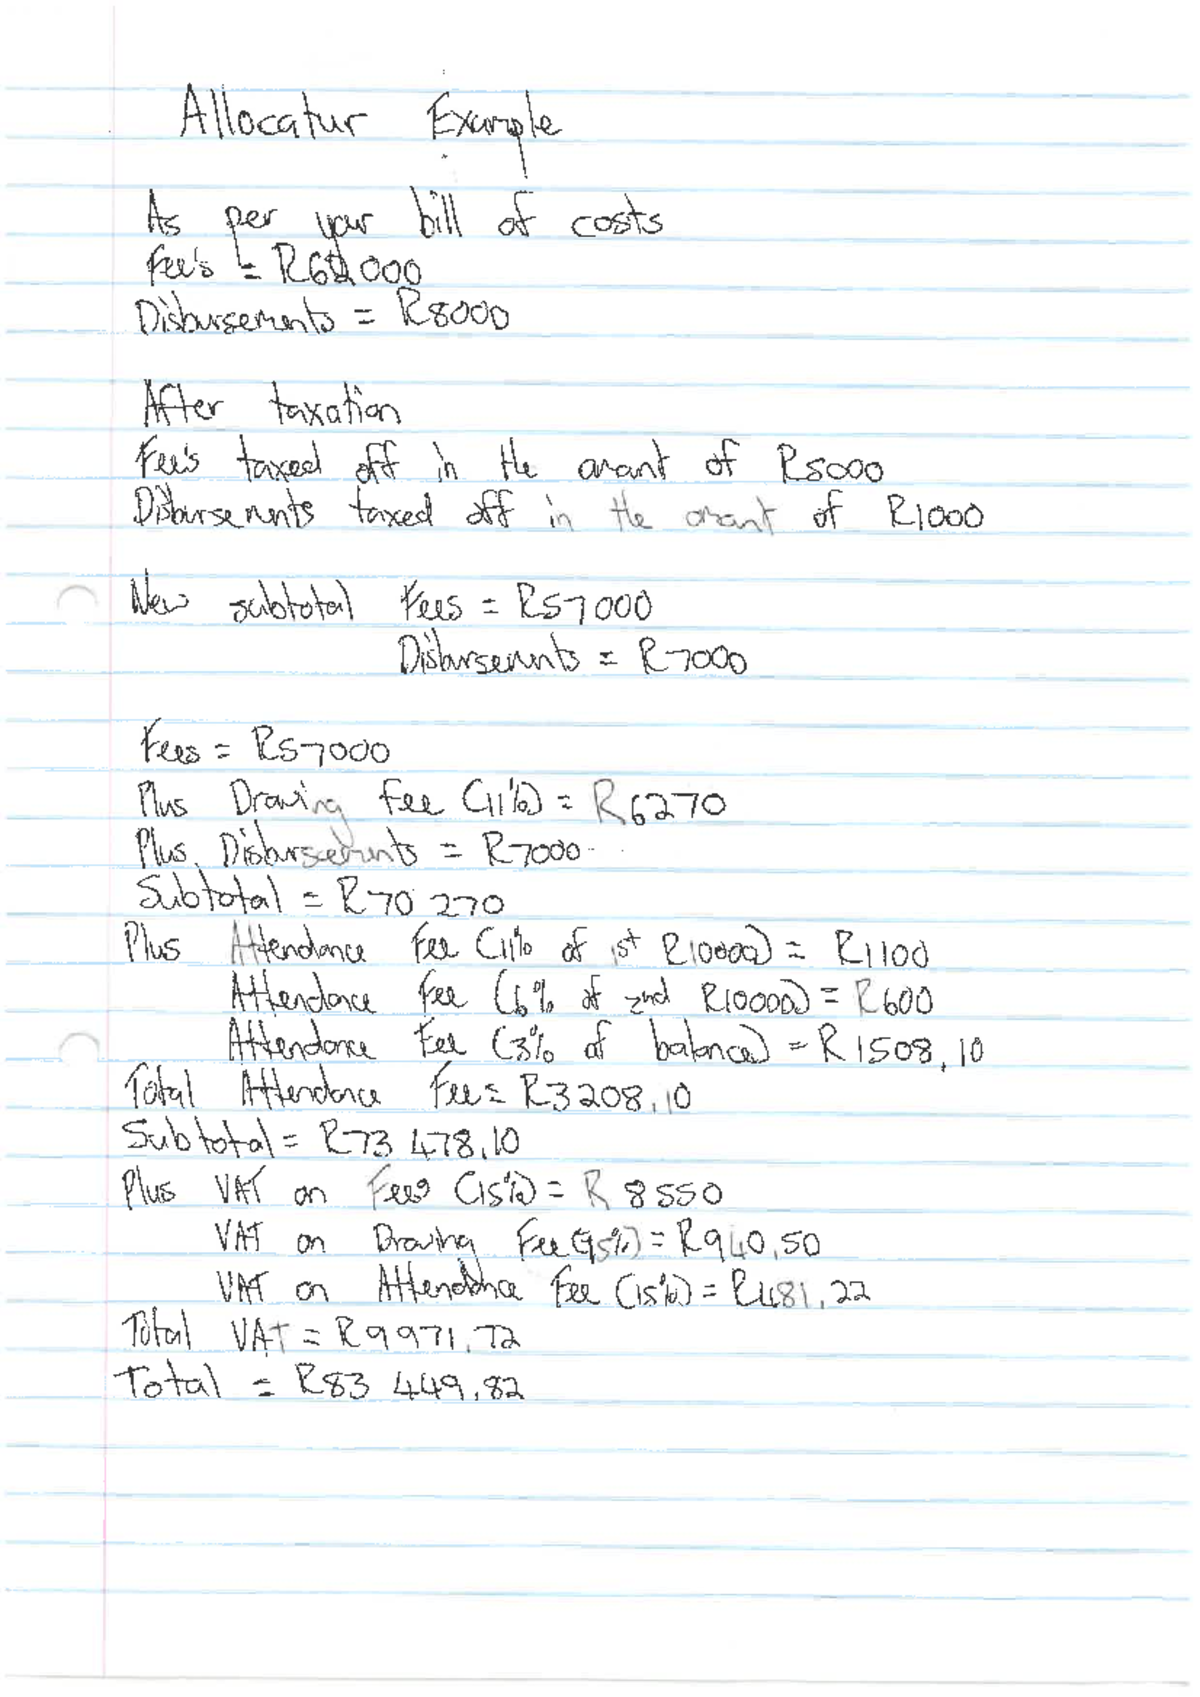 Allocatur Example
As per your bill of costs
Fee's = R62 000
Disbursements = R8000
After taxation
Fee's taxed off in the amount of R5000
Disbursements taxed off in the amount of R1000
New subtotal Fees = R57000
Disbursements = R7000
Fees = R57000
Plus Drawing Fee (11%) = R6270
Plus Disbursements = R7000
Subtotal = R70 270
Plus Attendance Fee (11% of 1st R10000) = R1100
Attendance Fee (6% of 2nd R10000) = R600
Attendance Fee (3% of balance) = R1508,10
Total Attendance Fee = R3208,10
Subtotal = R73 478,10
Plus VAT on Fees (15%) = R8550
VAT on Drawing Fee (15%) = R940,50
VAT on Attendance Fee (15%) = R481,22
Total VAT = R9971,72
Total = R83 449,82